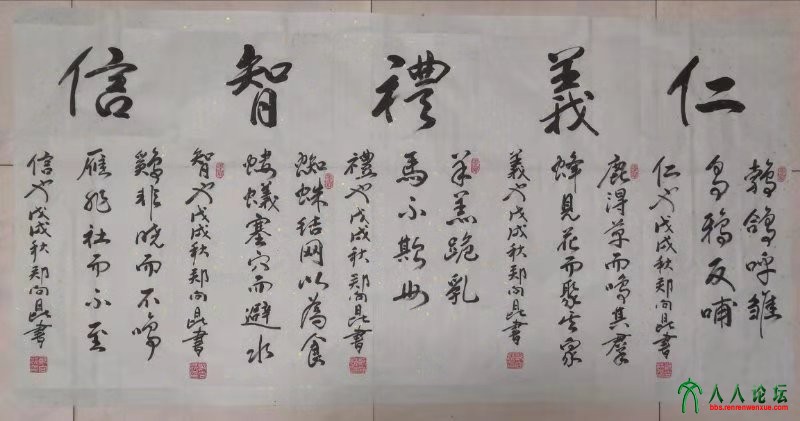 仁義禮智信
鵓鴿呼雛
烏鴉反哺
仁也戊戌秋郑向昆書
鹿得草而鳴其羣
蜂見花而聚其衆
義也戊戌秋郑向昆書
羊羔跪乳
馬不欺母
禮也戊戌秋郑向昆書
蜘蛛结网以為食
蝼蟻塞穴而避水
智也戊戌秋郑向昆書
鷄非晓而不鳴
雁非社而不至
信也戊戌秋郑向昆書
人人论坛
bbs.renrenwenxue.com